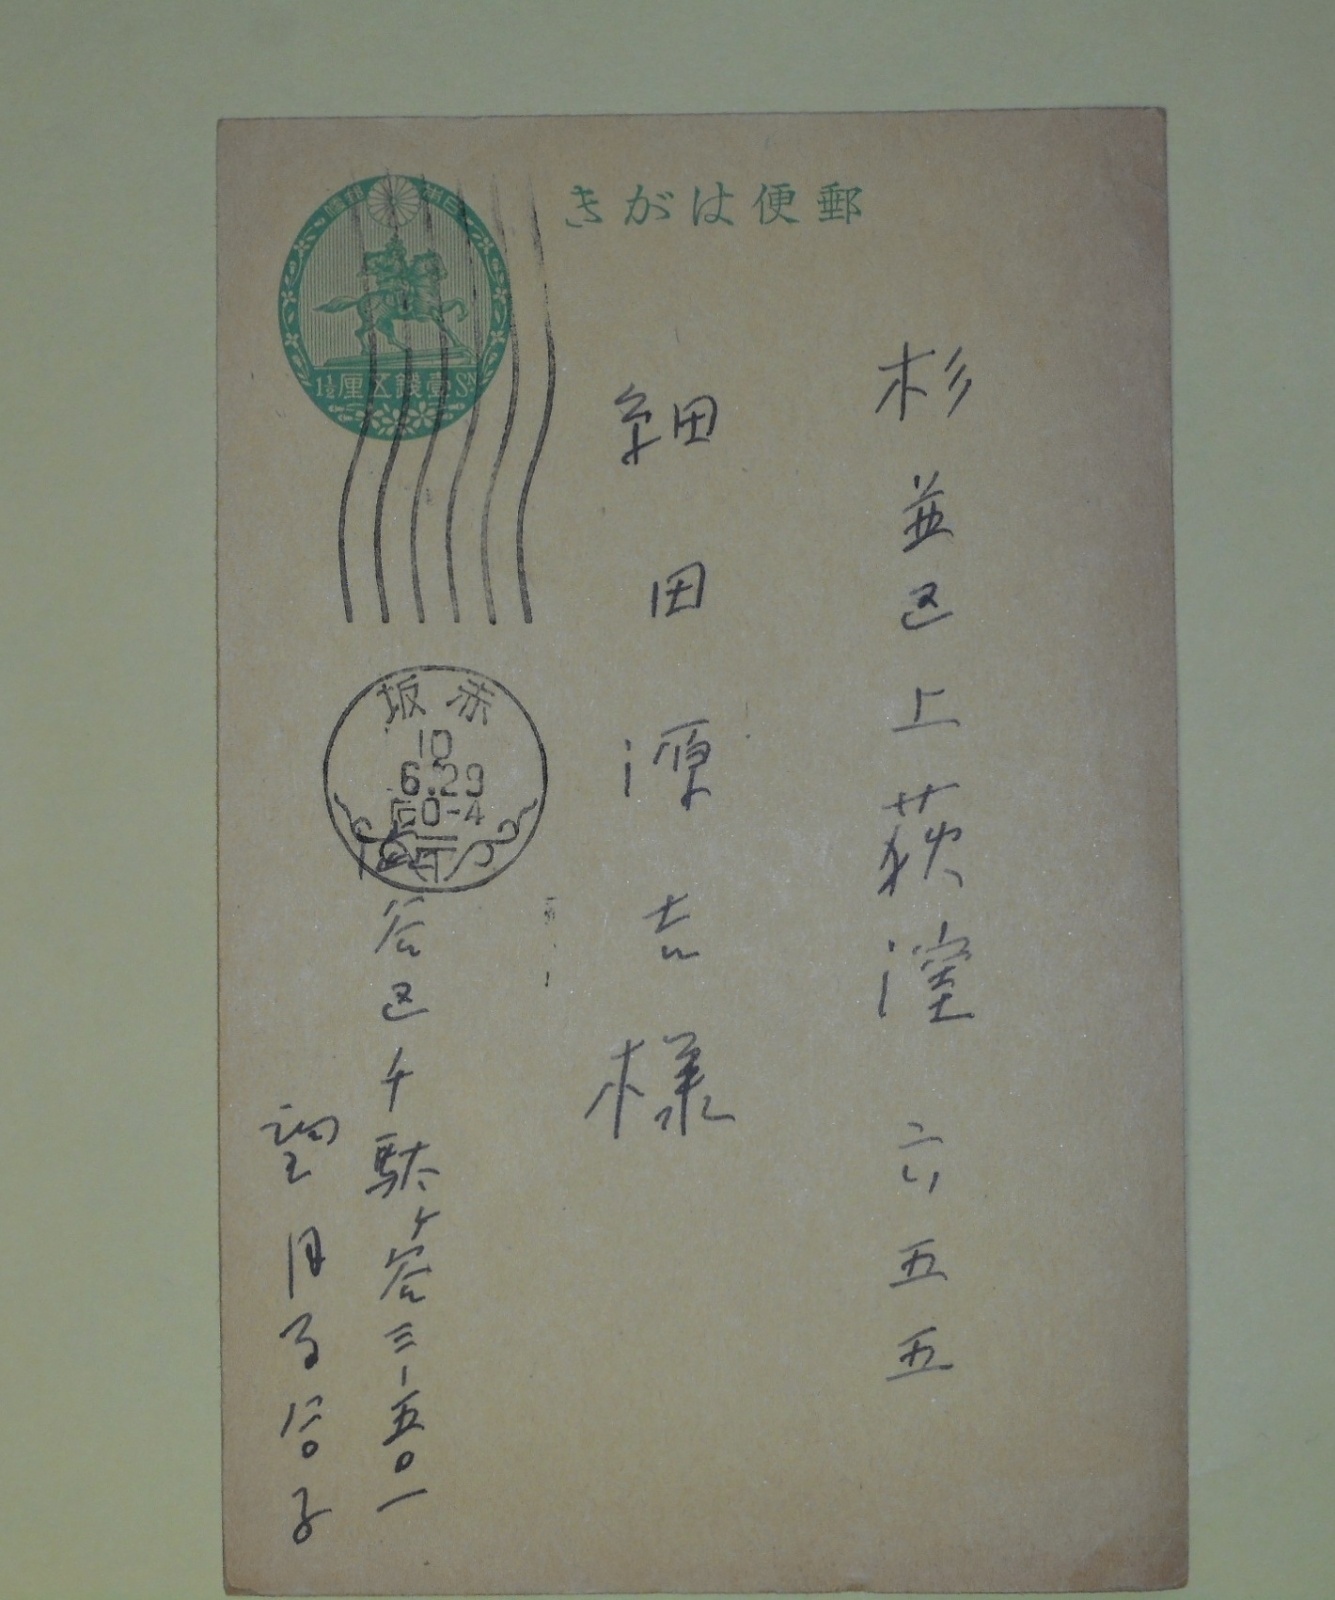 郵便はがき
日本郵便
1½ SN 壹錢五厘
杉並区上荻窪六五五
細田源吉様
赤坂
10
6.29
后0-4
谷区千駄ヶ谷三ー五〇一
望月百合子